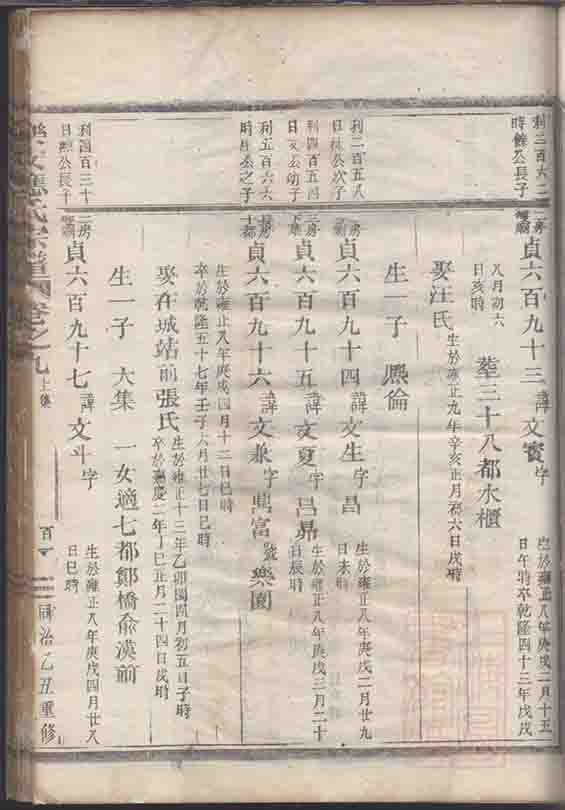 利二百六二
時餘公長子
二房
貞六百九十三諱文賓字
生於雍正八年庚戌二月十五
日午時卒乾隆四十三年戊戌
八月初六
日亥時
葬三十八都水櫃
娶汪氏
生於雍正九年辛亥正月初六日戌時
生一子熙倫
利二百五八
公次子
貞六百九十四諱文生字昌
生於雍正八年庚戌二月廿九
日未時
利四百五四
日文公幼子
三房
貞六百九十五諱文夏字呂鼎
生於雍正八年庚戌三月二十
日辰時
利五百六六
時公之子
十都
貞六百九十六諱文兼字鼎富號樂園
生於雍正八年庚戌四月十二日巳時
卒於乾隆五十七年壬子六月廿七日巳時
娶在城站前張氏
生於雍正十三年乙卯閏四月初五日子時
卒於嘉慶二年丁巳正月二十四日戌時
生一子大集一女適七都鄭橋俞漢前
利四百三十
日熙公長子
二房
貞六百九十七諱文斗字
生於雍正八年庚戌四月廿八
日巳時
應氏宗譜圖卷之九上集
同治乙丑重修